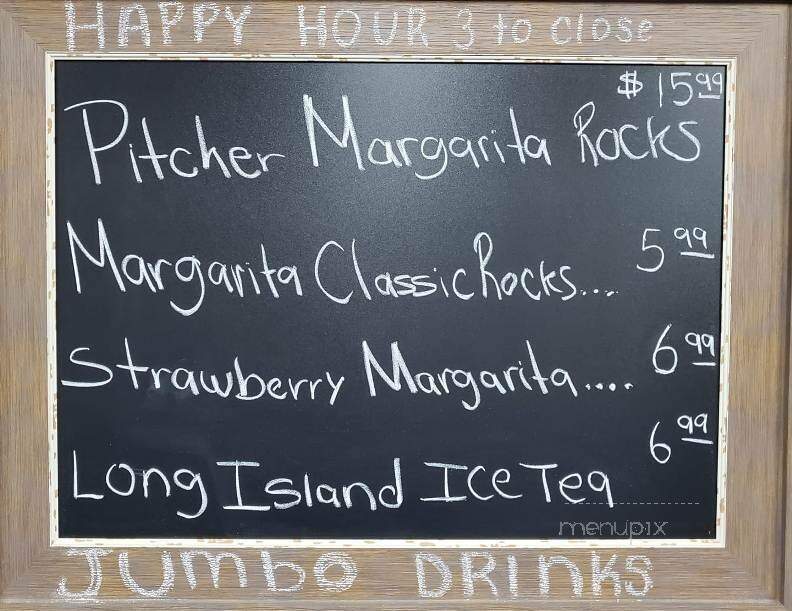 HAPPY HOUR 3 to close
$ 15 99
Pitcher Margarita Rocks
Margarita Classic Rocks.... 5 99
Strawberry Margarita.... 6 99
Long Island Ice Tea 6 99
menupix
Jumbo DRINKS